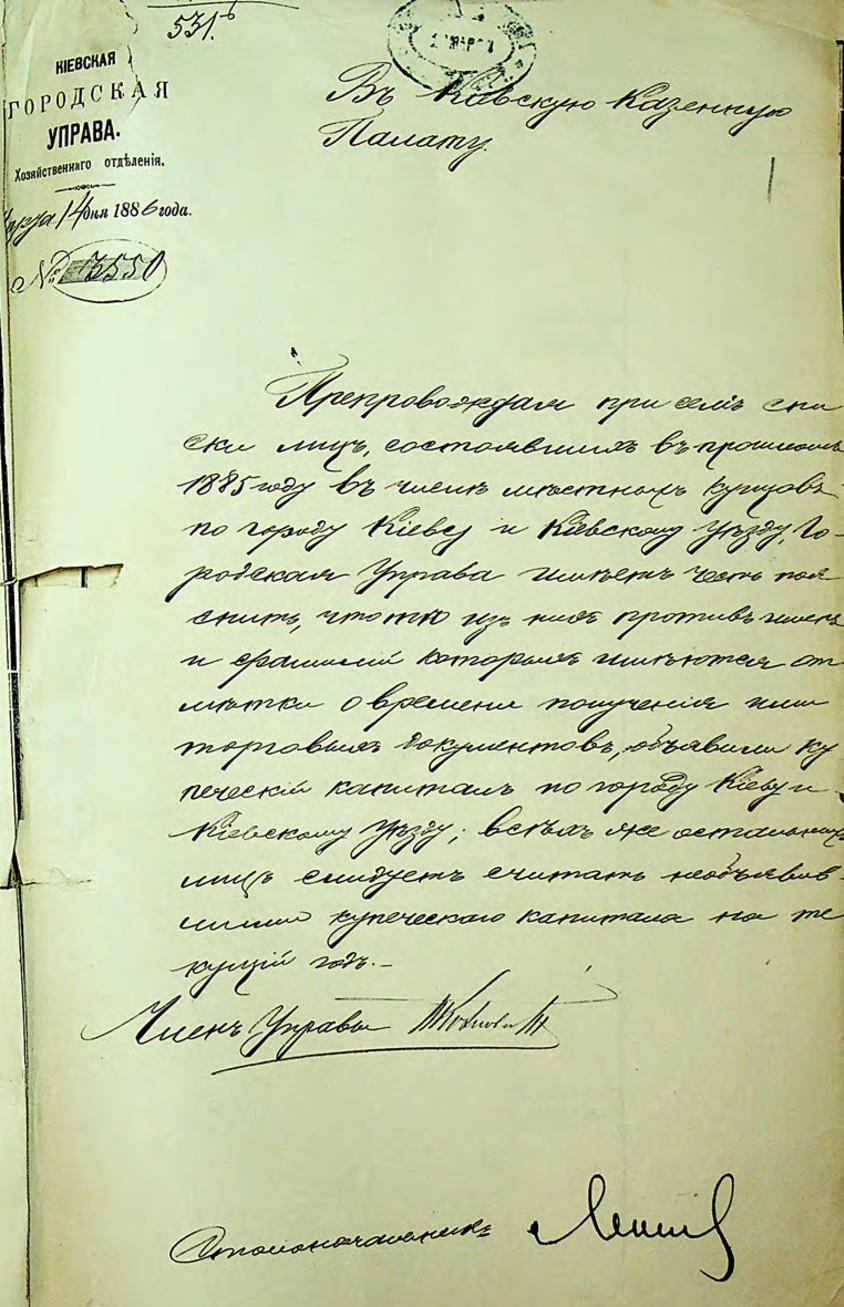 531.
КІЕВСКАЯ
ГОРОДСКАЯ
УПРАВА.
Хозяйственнаго отдѣленія.
Марта 14 дня 1886 года.
№ 3550
Въ Кіевскую Казенную
Палату.
1
Препровождая при семъ спи
ски лицъ, состоявшихъ въ прошломъ
1885 году въ числѣ мѣстныхъ купцовъ
по городу Кіеву и Кіевскому уѣзду, Го-
родская Управа имѣетъ честь пояс
снить, что тѣ изъ нихъ противъ именъ
и фамилій которыхъ имѣются от
мѣтки о времени полученія ими
торговыхъ документовъ, объявили ку
печескій капиталъ по городу Кіеву и
Кіевскому уѣзду; всѣхъ же остальныхъ
лицъ слѣдуетъ считать необъявив-
шими купеческаго капитала на те
кущій годъ.—
Членъ Управы
Столоначальникъ